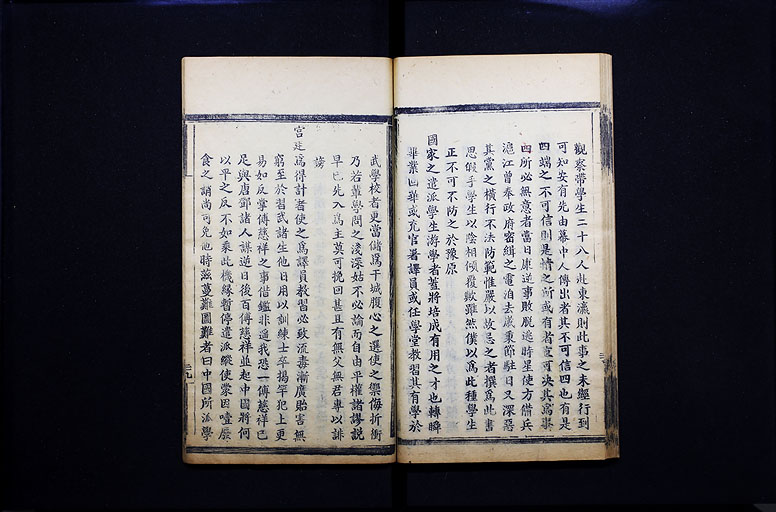 觀察帶學生二十八人赴東瀛則此事之未經行到
可知安有先由幕中人傳出者其不可信四也有是
四端之不可信則是情之所或有者豈可決其為事
之所必無意者當日康逆事敗脫逃時星使方借兵
滬江曾奉政府密緝之電洎去歲秉節駐日又深惡
其黨之橫行不法防範惟嚴以故忌之者撰為此書
思假手學生以陰相傾覆歟雖然僕以為此種學生
正不可不防之於豫原
國家之遣派學生游學者蓋將培成有用之才也轉瞬
畢業回華或充官署譯員或任學堂教習其有學於
武學校者更當儲為干城腹心之選使之禦侮折衝
乃若輩學問之淺深姑不必論而自由平權諸謬說
早已先入為主莫可挽回甚且有無父無君專以誹
謗
宮廷為得計者使之為譯員教習必致流毒漸廣貽害無
窮至於習武諸生他日用以訓練士卒揭竿犯上更
易如反掌傳慈祥之事借鑑非遙我恐一傳慈祥已
足與唐鄧諸人謀逆日後百傳慈祥並起中國將何
以平之反不如乘此機緣暫停遣派縱使蒙因噎廢
食之誚尚可免他時滋蔓難圖難者曰中國所派學
二九